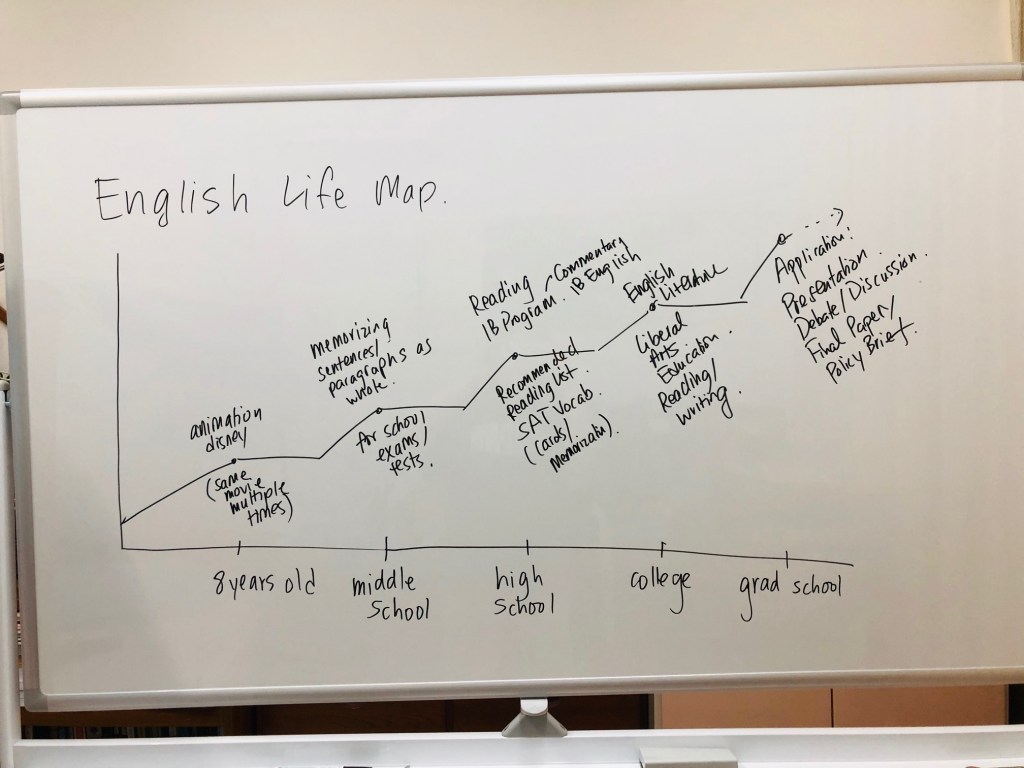 English Life Map.
animation
disney
(same
movie
multiple
times)
memorizing
sentences/
paragraphs as
whole.
for school
exams/
tests.
Reading / Commentary
IB Program. IB English
Recommended
Reading List.
SAT Vocab.
(Cards/
Memorizatin).
English
Literature
Liberal
Arts
Education.
Reading/
Writing.
Application:
Presentation.
Debate/Discussion.
Final Paper/
Policy Brief.
8 years old
middle
school
high
school
college
grad school